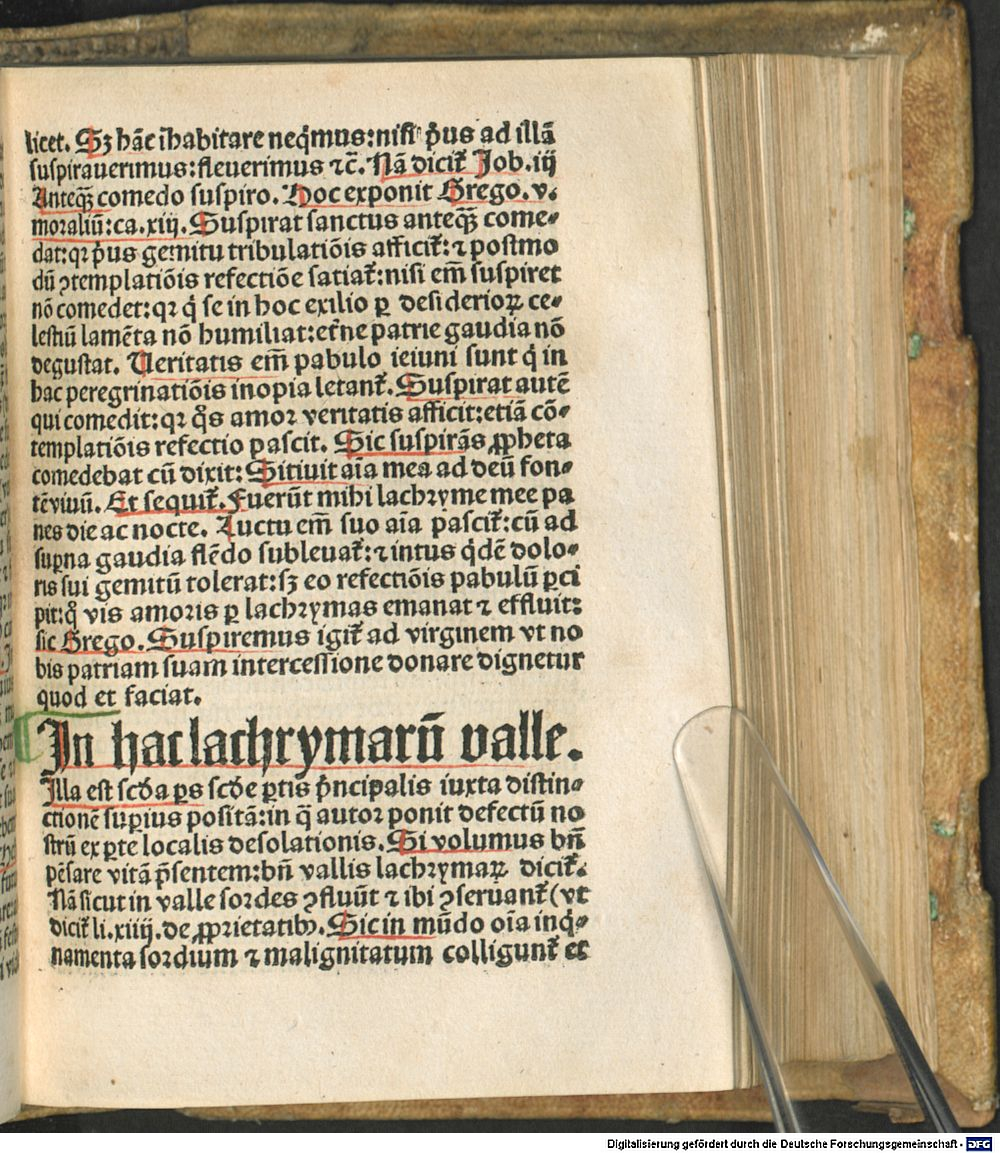 licet. Sꝫ hāc īhabitare neq̇mus: nisi p̄us ad illā
suspirauerimus: fleuerimus ⁊c̄. Nā dicit̄ Job. iij
Anteqꝫ̄ comedo suspiro. Hoc exponit Grego. v.
moraliū: ca. xiij. Suspirat sanctus anteqꝫ̄ come⸗
dat: qꝛ p̄us gemitu tribulatiōis afficit̄: ⁊ postmo
dū ꝯtemplatiōis refectiōe satiat̄: nisi em̄ suspiret
nō comedet: qꝛ q̇ se in hoc exilio ꝑ desiderioꝝ ce⸗
lestiū lamēta nō humiliat: et̄ne patrie gaudia nō
degustat. Ueritatis em̄ pabulo ieiuni sunt q̇ in
hac peregrinatiōis inopia letant̄. Suspirat autē
qui comedit: qꝛ q̊s amor veritatis afficit: etiā cō⸗
templatiōis refectio pascit. Sic suspirās ꝓpheta
comedebat cū dixit: Sitiuit aīa mea ad deū fon⸗
tē viuū. Et sequit̄. Fuerūt mihi lachryme mee pa
nes die ac nocte. Luctu em̄ suo aīa pascit̄: cū ad
suꝑna gaudia flēdo subleuat̄: ⁊ intus q̇dē dolo⸗
ris sui gemitū tolerat: sꝫ eo refectiōis pabulū ꝑci
pit: q̊ vis amoris ꝑ lachrymas emanat ⁊ effluit:
sic Grego. Suspiremus igit̄ ad virginem vt no
bis patriam suam intercessione donare dignetur
quod et faciat.
In hac lachrymarū valle.
Illa est scd̄a ꝑs scd̄e ꝑtis p̄ncipalis iuxta distin⸗
ctionē suꝑius positā: in q̄ autor ponit defectū no
strū ex ꝑte localis desolationis. Si volumus bn̄
pēsare vitā p̄sentem: bn̄ vallis lachrymaꝝ dicit̄.
Nā sicut in valle sordes ꝯfluūt ⁊ ibi ꝯseruant̄ (vt
dicit̄ li. xiiij. de ꝓprietatibꝰ. Sic in mūdo oīa inq̇⸗
namenta sordium ⁊ malignitatum colligunt̄ et
Digitalisierung gefördert durch die Deutsche Forschungsgemeinschaft - DFG